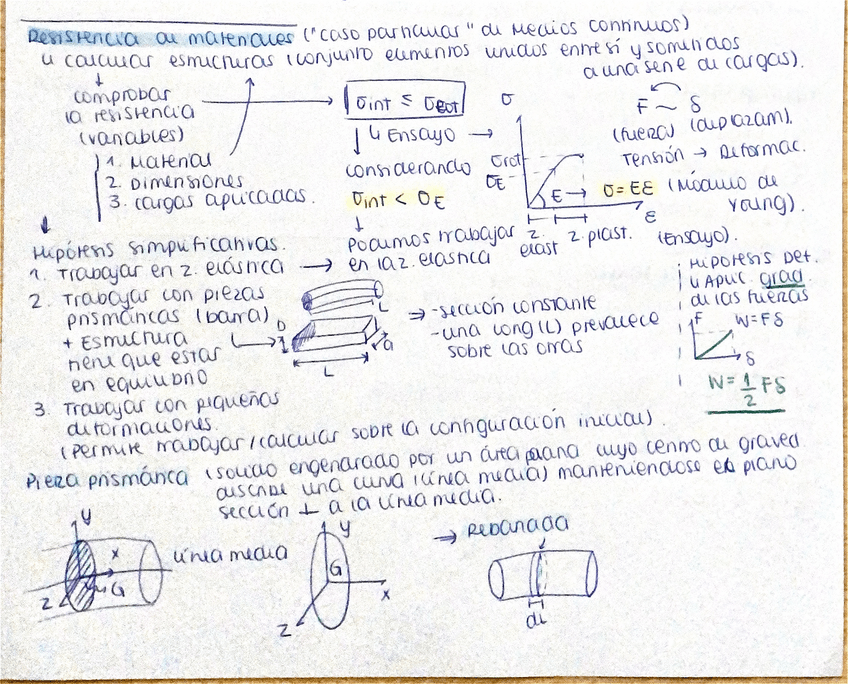 Resistencia de materiales ("caso particular" de Medios continuos)
↳ calcular estructuras (conjunto elementos unidos entre sí y sometidos
a una serie de cargas).
comprobar
la resistencia
(variables)
1. Material
2. Dimensiones
3. cargas aplicadas.
σint ≤ σrot
↳ Ensayo →
considerando
σint < σE
↓
Podemos trabajar
en la z. elástica
σ
σrot
σE
E →
ε
z. elást
z. plast.
F ~ δ
(fuerza) (desplazam).
Tensión → Deformac.
σ=Eε (Módulo de
Young).
(Ensayo).
Hipótesis simplificativas.
1. Trabajar en z. elástica →
2. Trabajar con piezas
prismáticas (barra)
+ Estructura
tiene que estar
en equilibrio
L
D
a
L
⇒ -sección constante
-una long (L) prevalece
sobre las otras
Hipótesis Def.
↳ Aplic. grad.
de las fuerzas
F
W=Fδ
δ
W=1/2 Fδ
3. Trabajar con pequeñas
deformaciones.
(Permite trabajar/calcular sobre la configuración inicial).
Pieza prismática (sólido engendrado por un área plana cuyo centro de graved
describe una curva (línea media) manteniendose el plano
sección ⊥ a la línea media.
y
x
G
z
línea media
y
G
x
z
→ Rebanada
dl